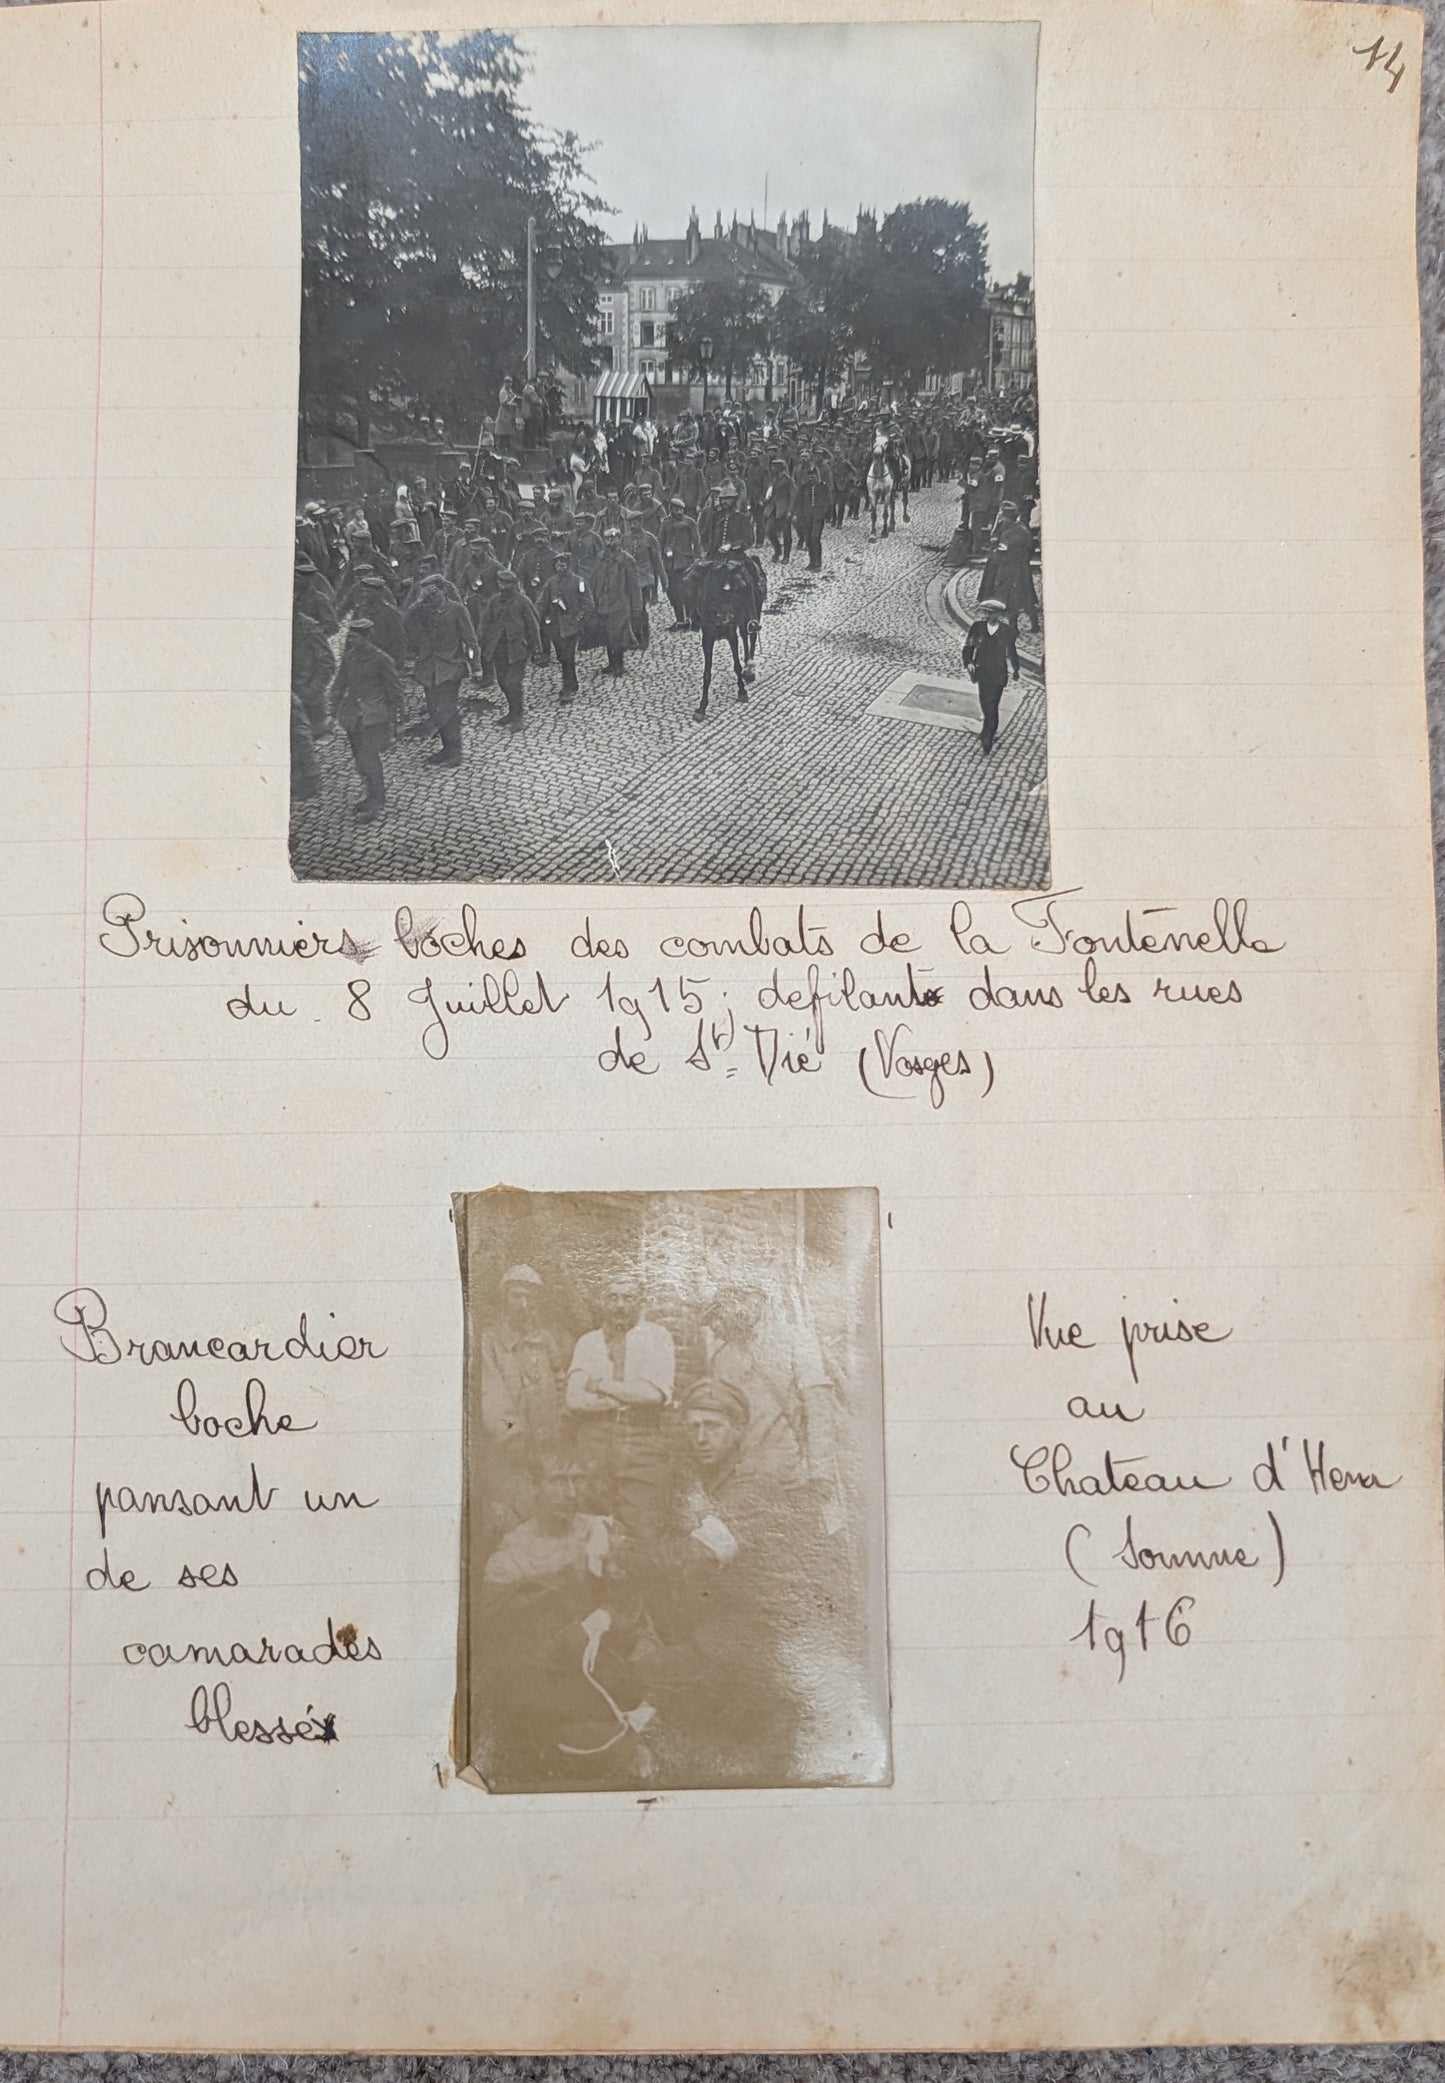 14
Prisonniers boches des combats de la Fontenelle
du 8 Juillet 1915; defilant dans les rues
de St Dié (Vosges)
Brancardier
boche
pansant un
de ses
camarades
blessé
Vue prise
au
Chateau d'Hem
(Somme)
1916